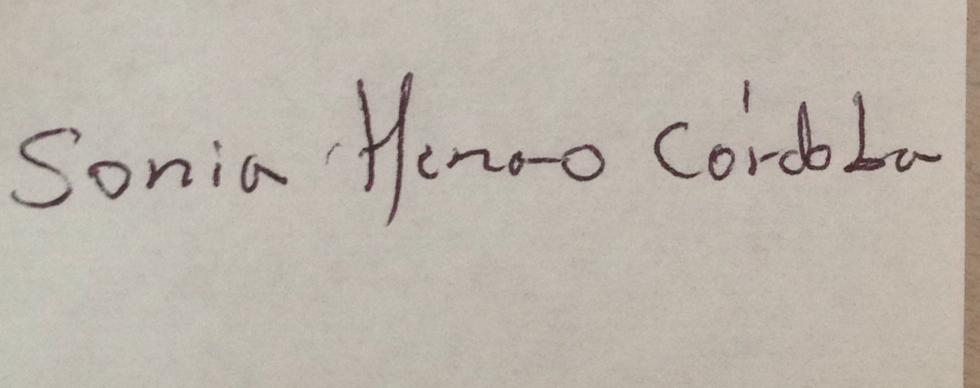 Sonia Henao Córdoba